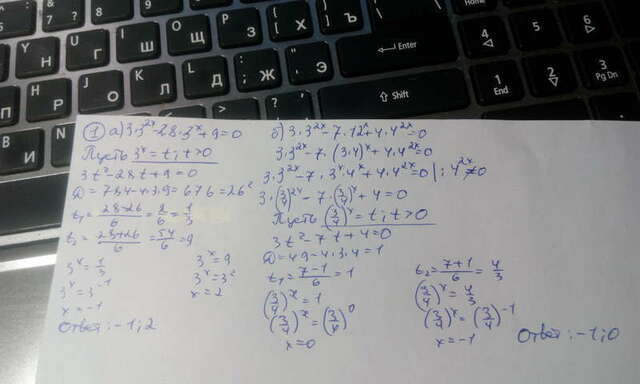 ① а) 3·3^2x - 28·3^x + 9 = 0
Пусть 3^x = t; t > 0
3t² - 28t + 9 = 0
Д = 784 - 4·3·9 = 676 = 26²
t₁ = (28-26)/6 = 2/6 = 1/3
t₂ = (28+26)/6 = 54/6 = 9
3^x = 1/3
3^x = 3^-1
x = -1
3^x = 9
3^x = 3²
x = 2
Ответ: -1; 2
б) 3·3^2x - 7·12^x + 4·4^2x = 0
3·3^2x - 7·(3·4)^x + 4·4^2x = 0
3·3^2x - 7·3^x·4^x + 4·4^2x = 0 | : 4^2x ≠ 0
3·(3/4)^2x - 7·(3/4)^x + 4 = 0
Пусть (3/4)^x = t; t > 0
3t² - 7t + 4 = 0
Д = 49 - 4·3·4 = 1
t₁ = (7-1)/6 = 1
(3/4)^x = 1
(3/4)^x = (3/4)^0
x = 0
t₂ = (7+1)/6 = 4/3
(3/4)^x = 4/3
(3/4)^x = (3/4)^-1
x = -1
Ответ: -1; 0
& 7 ?
* 8
( 9
) 0
Г
Ш
Щ
З
Х
Ъ
О
Л
Д
Ж
Э
Р
Н
П
И
Enter
Shift
Home
4
5
6
1 End
2
3 PgDn